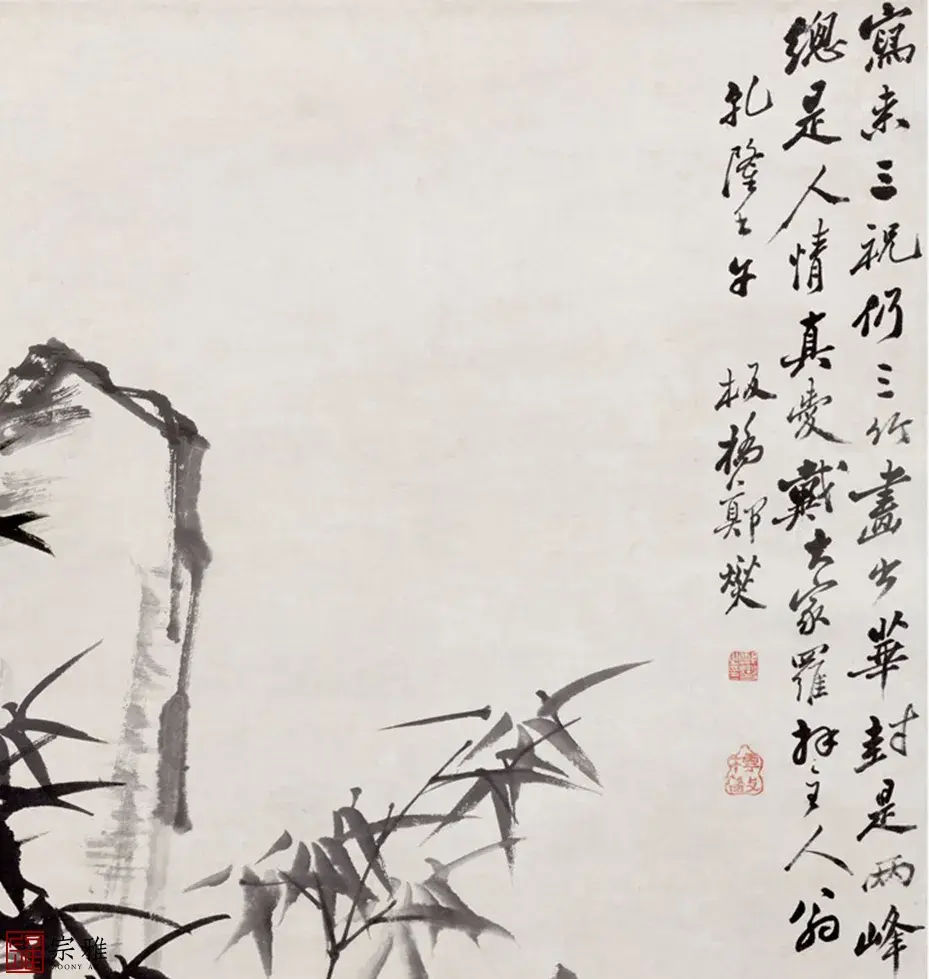 寫来三祝仍三竹畫出華封是两峰
總是人情真愛戴大家羅拜主人翁
乾隆壬午 板橋鄭燮
宗雅